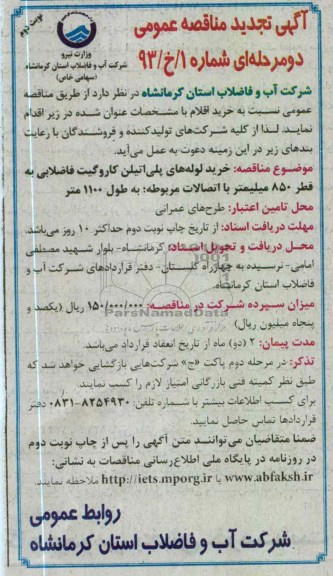 آگهی تجدید مناقصه عمومی
دومرحله‌ای شماره ۹۳/خ/۱
نوبت دوم
وزارت نیرو
شرکت آب و فاضلاب استان کرمانشاه
(سهامی خاص)
شرکت آب و فاضلاب استان کرمانشاه در نظر دارد از طریق مناقصه
عمومی نسبت به خرید اقلام با مشخصات عنوان شده در زیر اقدام
نماید. لذا از کلیه شرکت‌های تولیدکننده و فروشندگان با رعایت
بندهای زیر در این زمینه دعوت به عمل می‌آید.
موضوع مناقصه: خرید لوله‌های پلی‌اتیلن کاروگیت فاضلابی به
قطر ۸۵۰ میلیمتر با اتصالات مربوطه؛ به طول ۱۱۰۰ متر
محل تامین اعتبار: طرح‌های عمرانی
مهلت دریافت اسناد: از تاریخ چاپ نوبت دوم حداکثر ۱۰ روز می‌باشد.
محل دریافت و تحویل اسناد: کرمانشاه- بلوار شهید مصطفی
امامی- نرسیده به چهارراه گلستان- دفتر قراردادهای شرکت آب و
فاضلاب استان کرمانشاه.
میزان سپرده شرکت در مناقصه: ۱۵۰/۰۰۰/۰۰۰ ریال (یکصد و
پنجاه میلیون ریال)
ParsNamadData
مدت پیمان: ۲ (دو) ماه از تاریخ انعقاد قرارداد می‌باشد.
تذکر: در مرحله دوم پاکت «ج» شرکت‌هایی بازگشایی خواهد شد که
طبق نظر کمیته فنی بازرگانی امتیاز لازم را کسب نمایند.
برای کسب اطلاعات بیشتر با شماره تلفن: ۸۲۵۴۹۳۰-۰۸۳۱ دفتر
قراردادها تماس حاصل نمایید.
ضمنا متقاضیان می‌توانند متن آگهی را پس از چاپ نوبت دوم
در روزنامه در پایگاه ملی اطلاع‌رسانی مناقصات به نشانی:
http://iets.mporg.ir یا www.abfaksh.ir ملاحظه نمایند.
روابط عمومی
شرکت آب و فاضلاب استان کرمانشاه